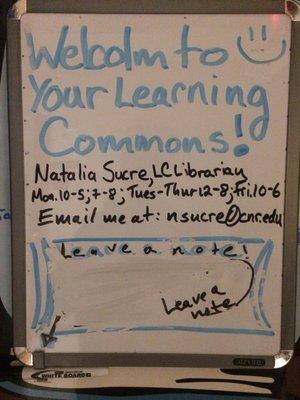 Welcolm to
Your Learning
Commons!
Natalia Sucre, LC Librarian
Mon. 10-5; 7-8; Tues-Thur 12-8; Fri. 10-6
Email me at: nsucre@cnr.edu
Leave a note!
Leave a
note
WHITE BOARD